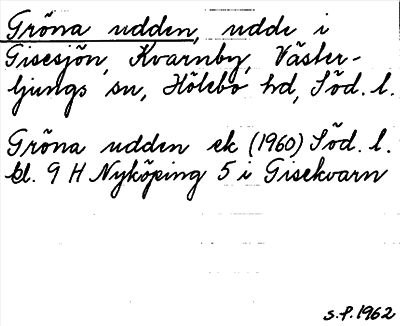 Gröna udden, udde i
Gisesjön, Kvarnby, Väster-
ljungs sn, Hölebo hd, Söd. l.
Gröna udden ek (1960) Söd. l.
bl. 9 H Nyköping 5 i Gisekvarn
S.P. 1962